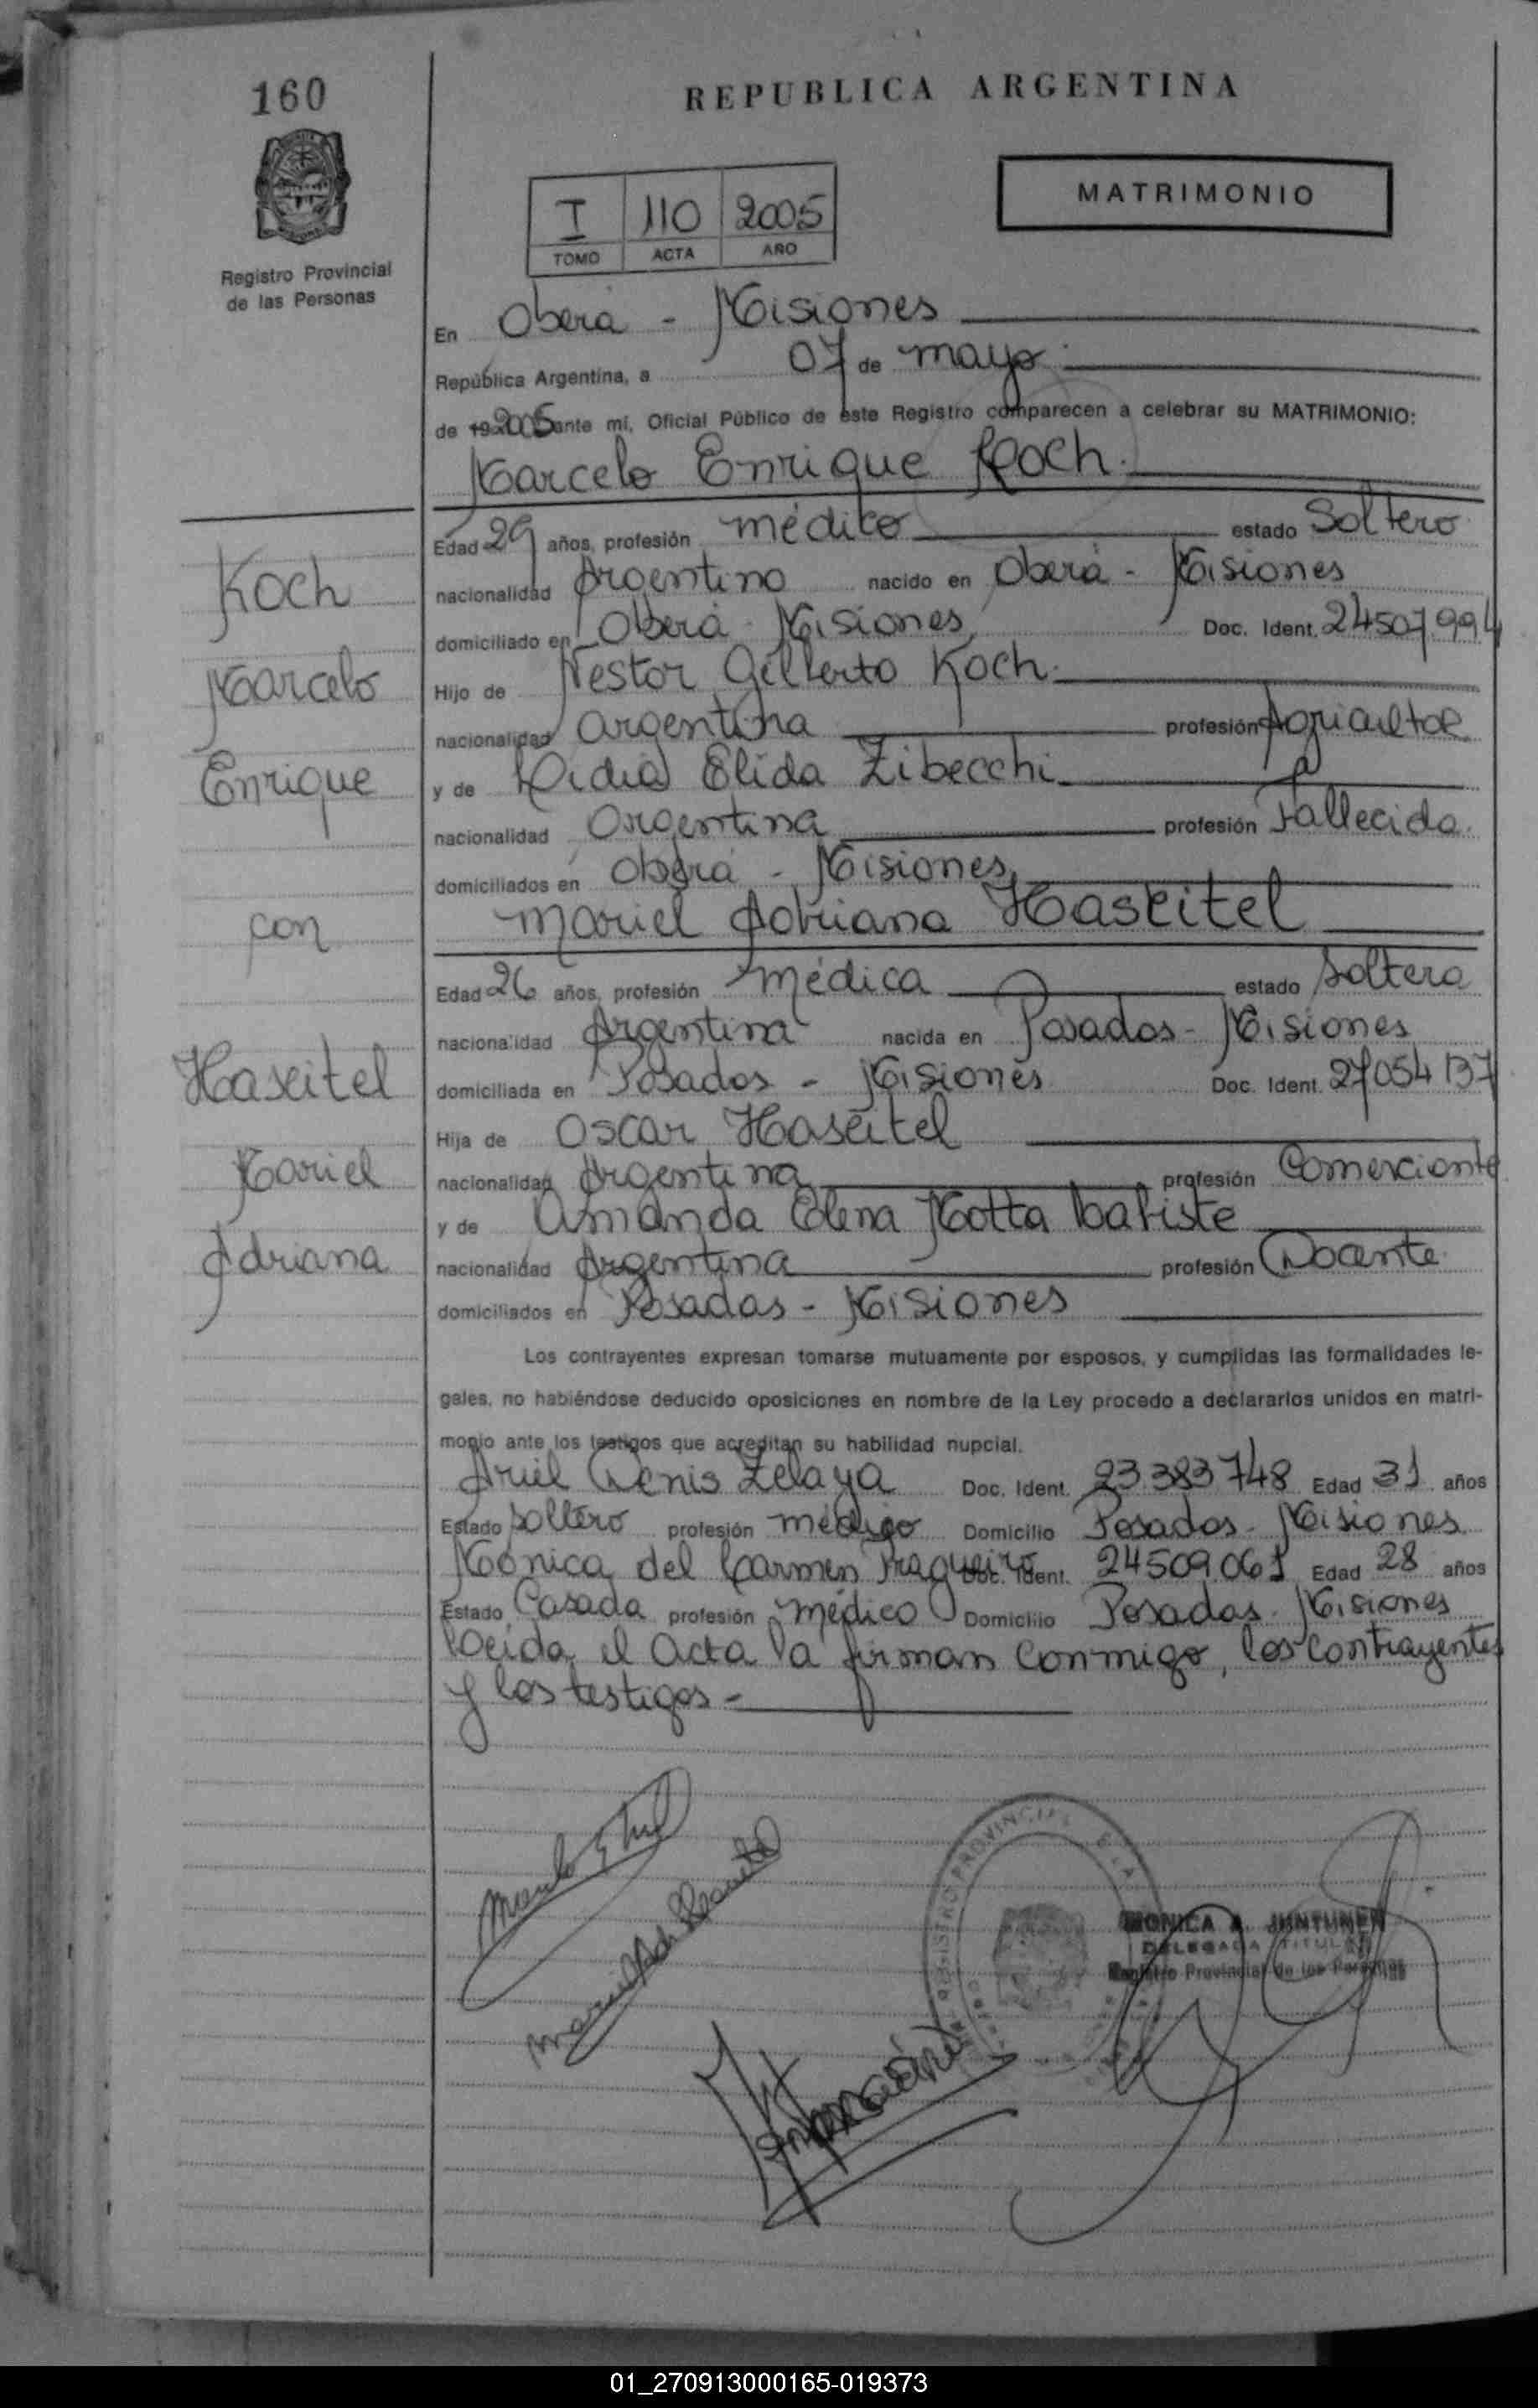 160
REPUBLICA ARGENTINA
I 110 2005
TOMO ACTA AÑO
MATRIMONIO
Registro Provincial
de las Personas
En Oberá - Misiones
República Argentina, a 07 de mayo
de 19 2005 ante mí, Oficial Público de este Registro comparecen a celebrar su MATRIMONIO:
Marcelo Enrique Koch.
Edad 29 años, profesión médico estado Soltero
nacionalidad Argentino nacido en Oberá - Misiones
domiciliado en Oberá - Misiones Doc. Ident. 24507994
Hijo de Nestor Gilberto Koch.
nacionalidad argentina profesión Agricultor
y de Lidia Elida Zibecchi
nacionalidad Argentina profesión Fallecida.
domiciliados en Oberá - Misiones
Mariel Adriana Haseitel
Edad 26 años, profesión médica estado Soltera
nacionalidad Argentina nacida en Posadas - Misiones
domiciliada en Posadas - Misiones Doc. Ident. 27054137
Hija de Oscar Haseitel
nacionalidad Argentina profesión Comerciante
y de Amanda Elena Motta Batiste
nacionalidad Argentina profesión Docente
domiciliados en Posadas - Misiones
Koch
Marcelo
Enrique
con
Haseitel
Mariel
Adriana
Los contrayentes expresan tomarse mutuamente por esposos, y cumplidas las formalidades le-
gales, no habiéndose deducido oposiciones en nombre de la Ley procedo a declararlos unidos en matri-
monio ante los testigos que acreditan su habilidad nupcial.
Ariel Denis Zelaya Doc. Ident. 23.383748 Edad 31 años
Estado soltero profesión médico Domicilio Posadas - Misiones
Mónica del Carmen Fragueiro Doc. Ident. 24509.061 Edad 28 años
Estado Casada profesión médico Domicilio Posadas - Misiones
Leida el Acta la firman conmigo, los contrayentes
y los testigos -
MONICA A. JUNTUNEN
DELEGADA TITULAR
Registro Provincial de las Personas
01_270913000165-019373